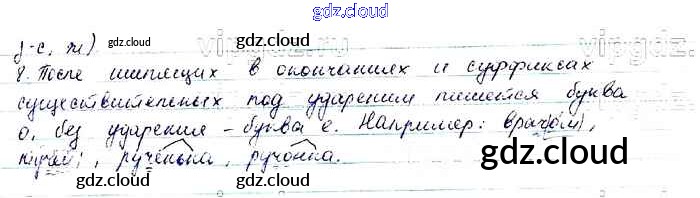 gdz.cloud
з-с, ж) gdz.cloud
gdz.cloud
8. После шипящих в окончаниях и суффиксах
существительных под ударением пишется буква
о, без ударения – буква е. Например: врачом,
тучей, рученька, ручонка.
gdz.cloud
gdz.cloud
gdz.cloud